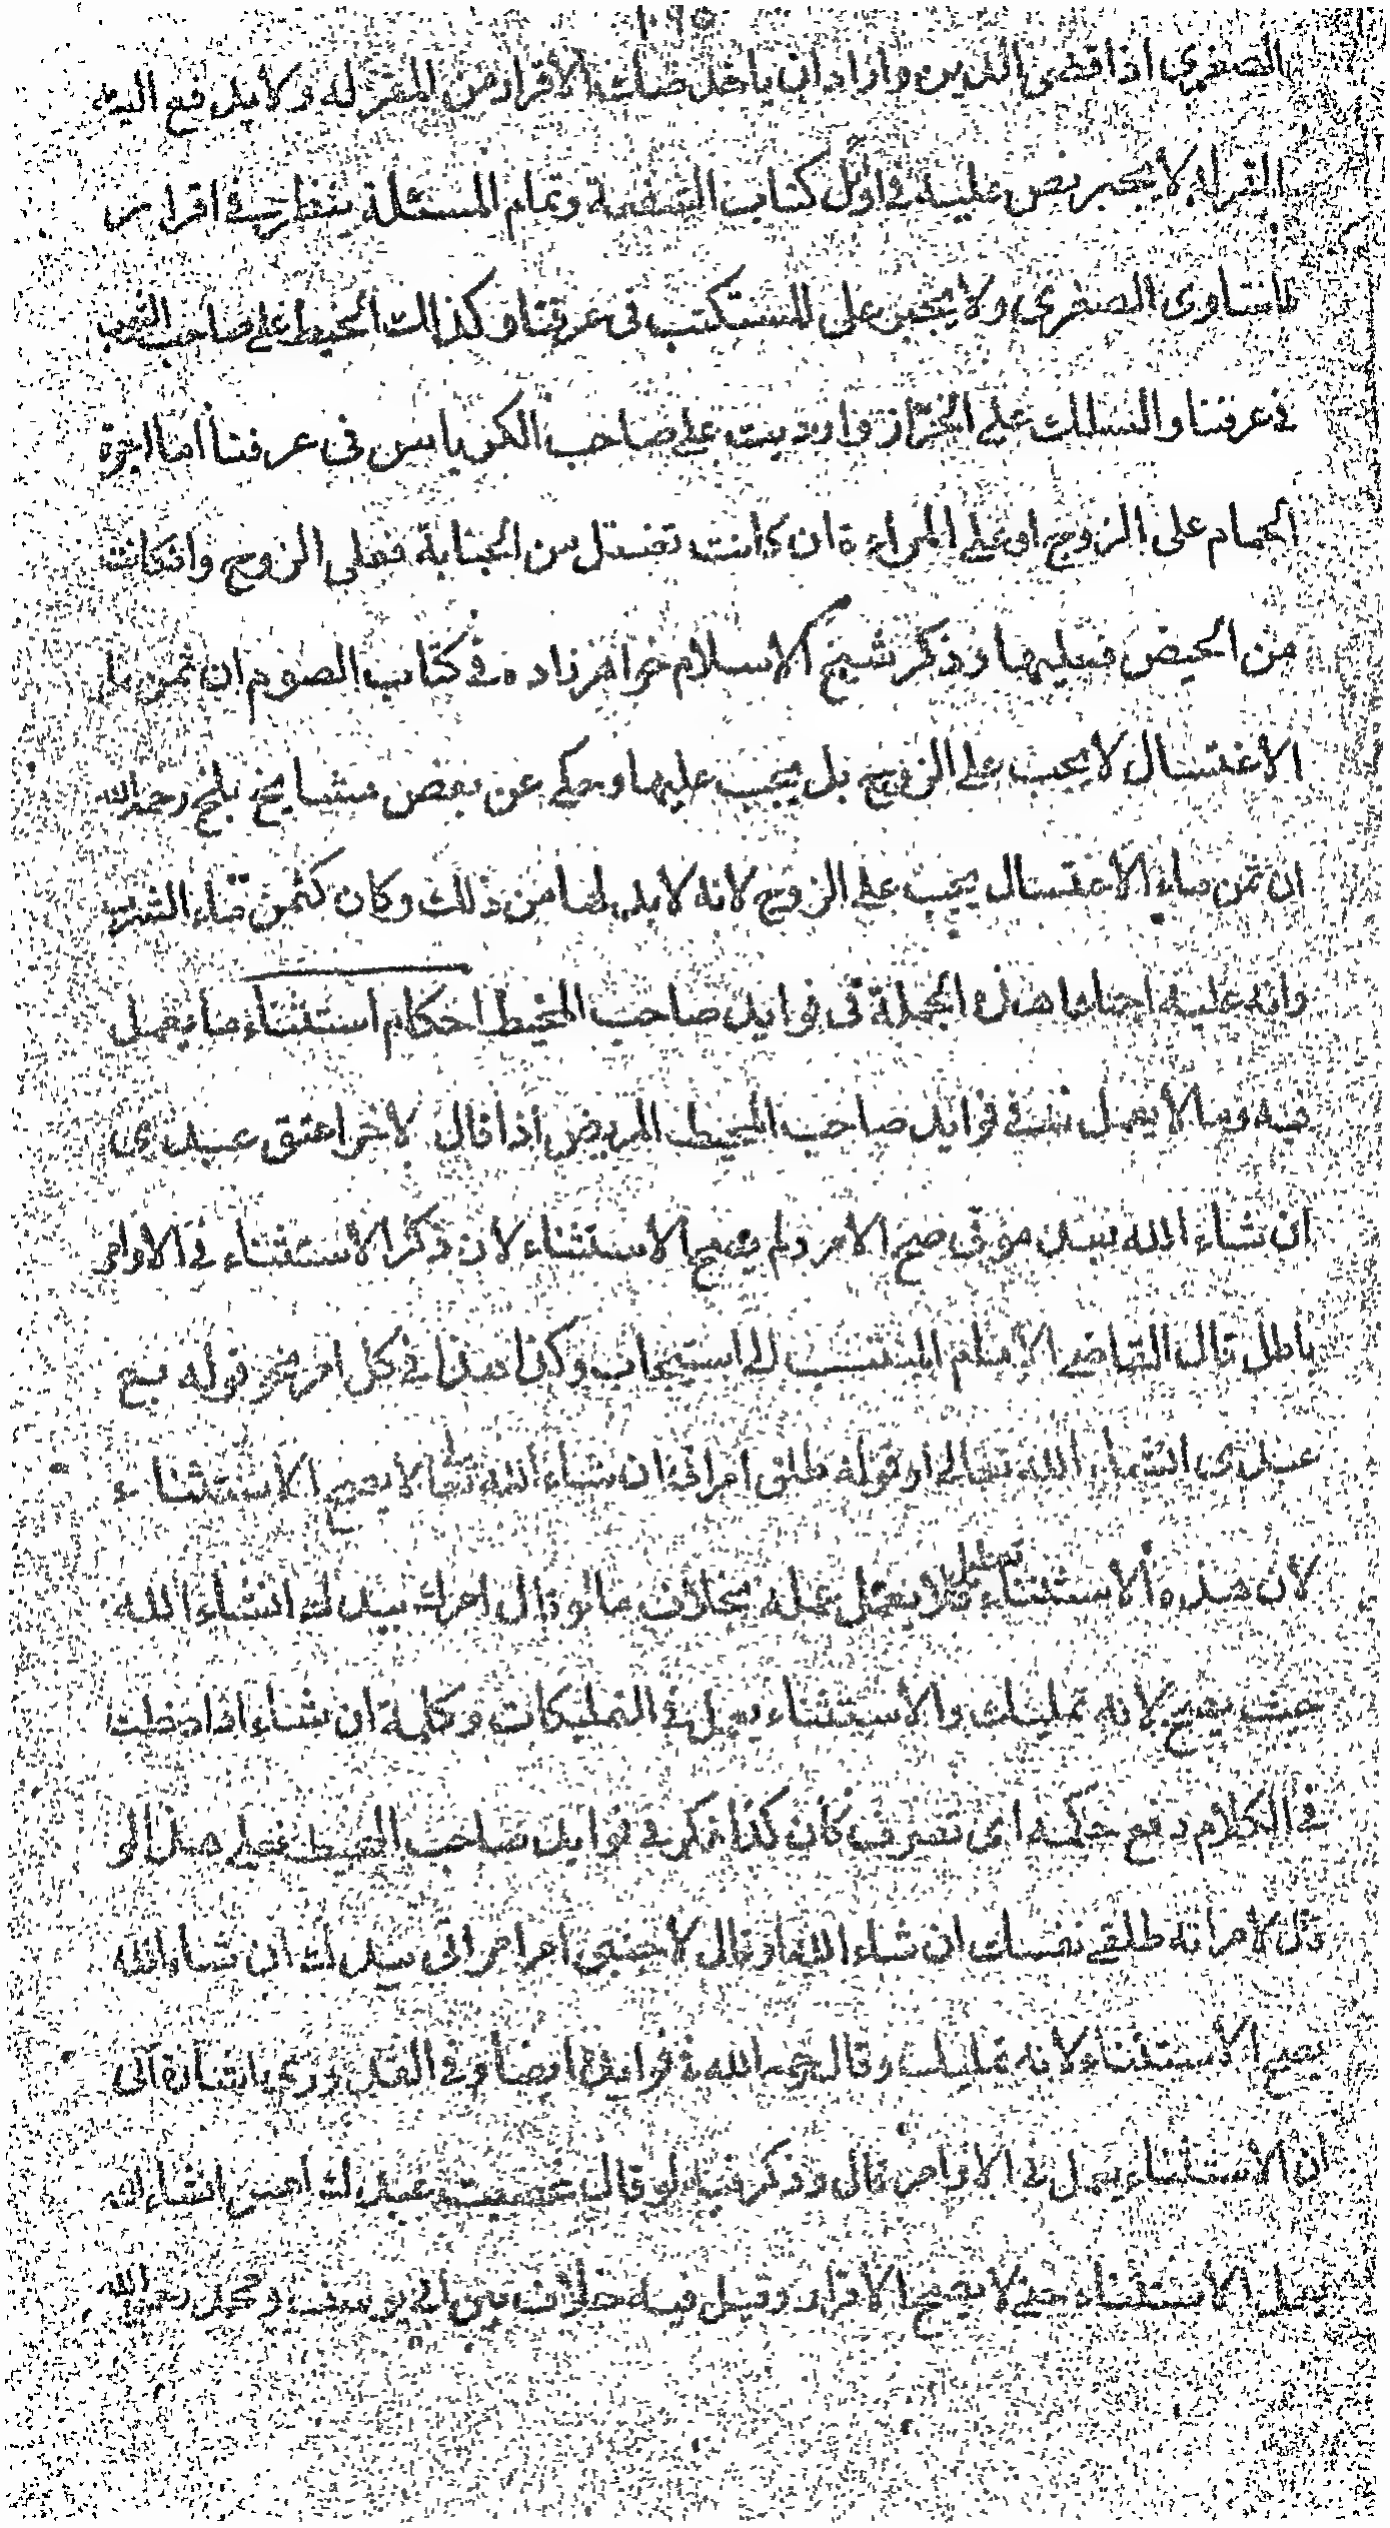 الصغرى اذا قضى الدين واراد ان ياخذ صك الاقرار من المقر له ولا يدفع اليه
المقر له لا يجبر نص عليه في اول كتاب الشفعة وتمام المسئلة ينظر في اقرار
فتاوى الصغرى ولا يجبر على المستكتب في عرفنا وكذلك الخيط على صاحب الثوب
في عرفنا والسلك على الخراز على صاحب الكرباس في عرفنا اما اجرة
الحمام على الزوج او على المراة ان كانت تغتسل من الجنابة فعلى الزوج وان كانت
من الحيض فعليها وذكر شيخ الاسلام خواهرزاده في كتاب الصوم ان ثمن ماء
الاغتسال لا يجب على الزوج بل يجب عليها وحكي عن بعض مشايخ بلخ رحمه الله
ان ثمن ماء الاغتسال يجب على الزوج لانه لا بد لها من ذلك وكان كثمن ماء الشرب
وانه عليه هذه الجملة في فوايد صاحب المحيط احكام استثناء ما يعمل
فيه وما لا يعمل في فوايد صاحب المحيط المريض اذا قال لاخر اعتق عبدي
ان شاء الله بعد موتي صح الامر ولم يصح الاستثناء لان ذكر الاستثناء في الاوامر
باطل قال القاضي الامام المنتسب الى اسبيجاب وكذا هذا في كل امر نحو قوله بع
عبدي انشاء الله تعالى او قوله طلق امراتي ان شاء الله تعا لا يصح الاستثناء
لان هذه الاستثناء لا يعمل عمله بخلاف ما لو قال امرك بيدك انشاء الله
حيث يصح لانه تمليك والاستثناء يعمل في التمليكات وكلمة ان شاء اذا دخلت
في الكلام يرفع حكمه اي تصرف كان كذا ذكر في فوايد صاحب المحيط فعلى هذا لو
قال لامراته طلقي نفسك ان شاء الله او قال لاجنبي امر امراتي بيدك ان شاء الله
يصح الاستثناء لانه تمليك وقال رحمه الله في فوايده ايضا وفي القدوري
ان الاستثناء يعمل في الاوامر قال وذكر لو قال عبدك انشاء الله
يعمل الاستثناء حتى لا يصح الاقرار وقيل فيه خلاف بين ابي يوسف ومحمد رحمه الله